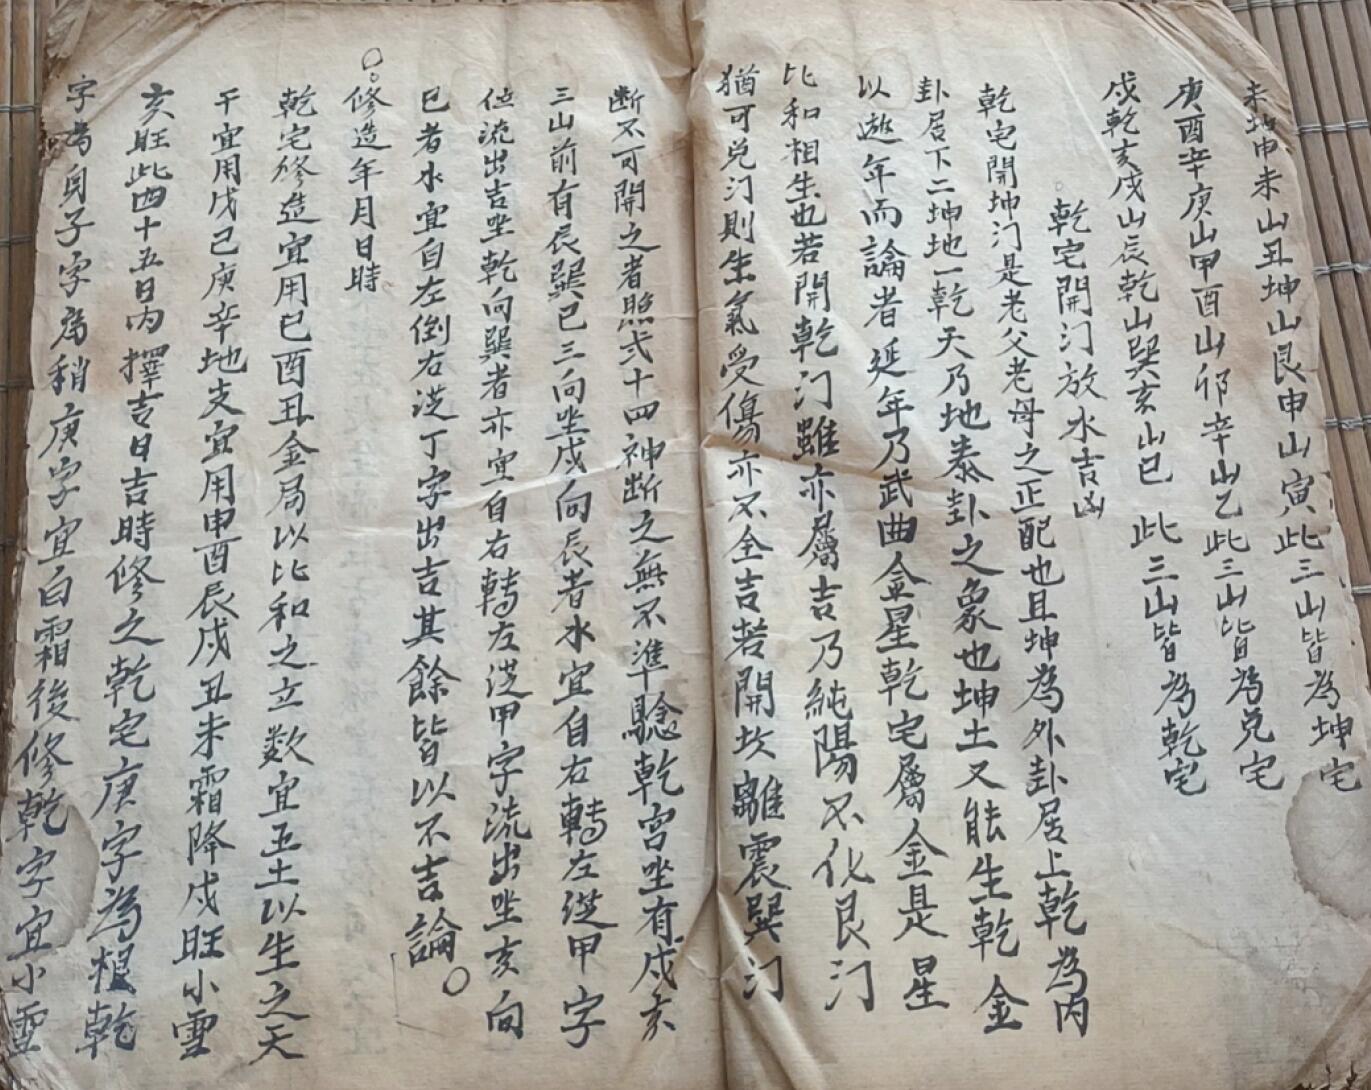 未坤申未山丑坤山艮申山寅此三山皆為坤宅
庚酉辛庚山甲酉山卯辛山乙此三山皆為兌宅
戌乾亥戌山辰乾山巽亥山巳此三山皆為乾宅
乾宅開门放水吉凶
乾宅開坤门是老父老母之正配也且坤為外卦居上乾為内
卦居下二坤地一乾天乃地泰卦之象也坤土又能生乾金
以遊年而論者延年乃武曲金星乾宅屬金是星
比和相生也若開乾门雖亦屬吉乃純陽不化艮门
猶可兑门則生氣受傷亦不全吉若開坎離震巽门
断不可開之者照弍十四神断之無不準驗乾宫坐有戌亥
三山前有辰巽巳三向坐戌向辰者水宜自右轉左從甲字
位流出吉坐乾向巽者亦宜自右轉左從甲字流出坐亥向
巳者水宜自左倒右從丁字出吉其餘皆以不吉論。
修造年月日時
乾宅修造宜用巳酉丑金局以比和之立数宜五土以生之天
干宜用戊己庚辛地支宜用申酉辰戌丑未霜降戌旺小雪
亥旺此四十五日内擇吉日吉時修之乾宅庚字為根乾
字為身子字為稍庚字宜白霜後修乾字宜小雪